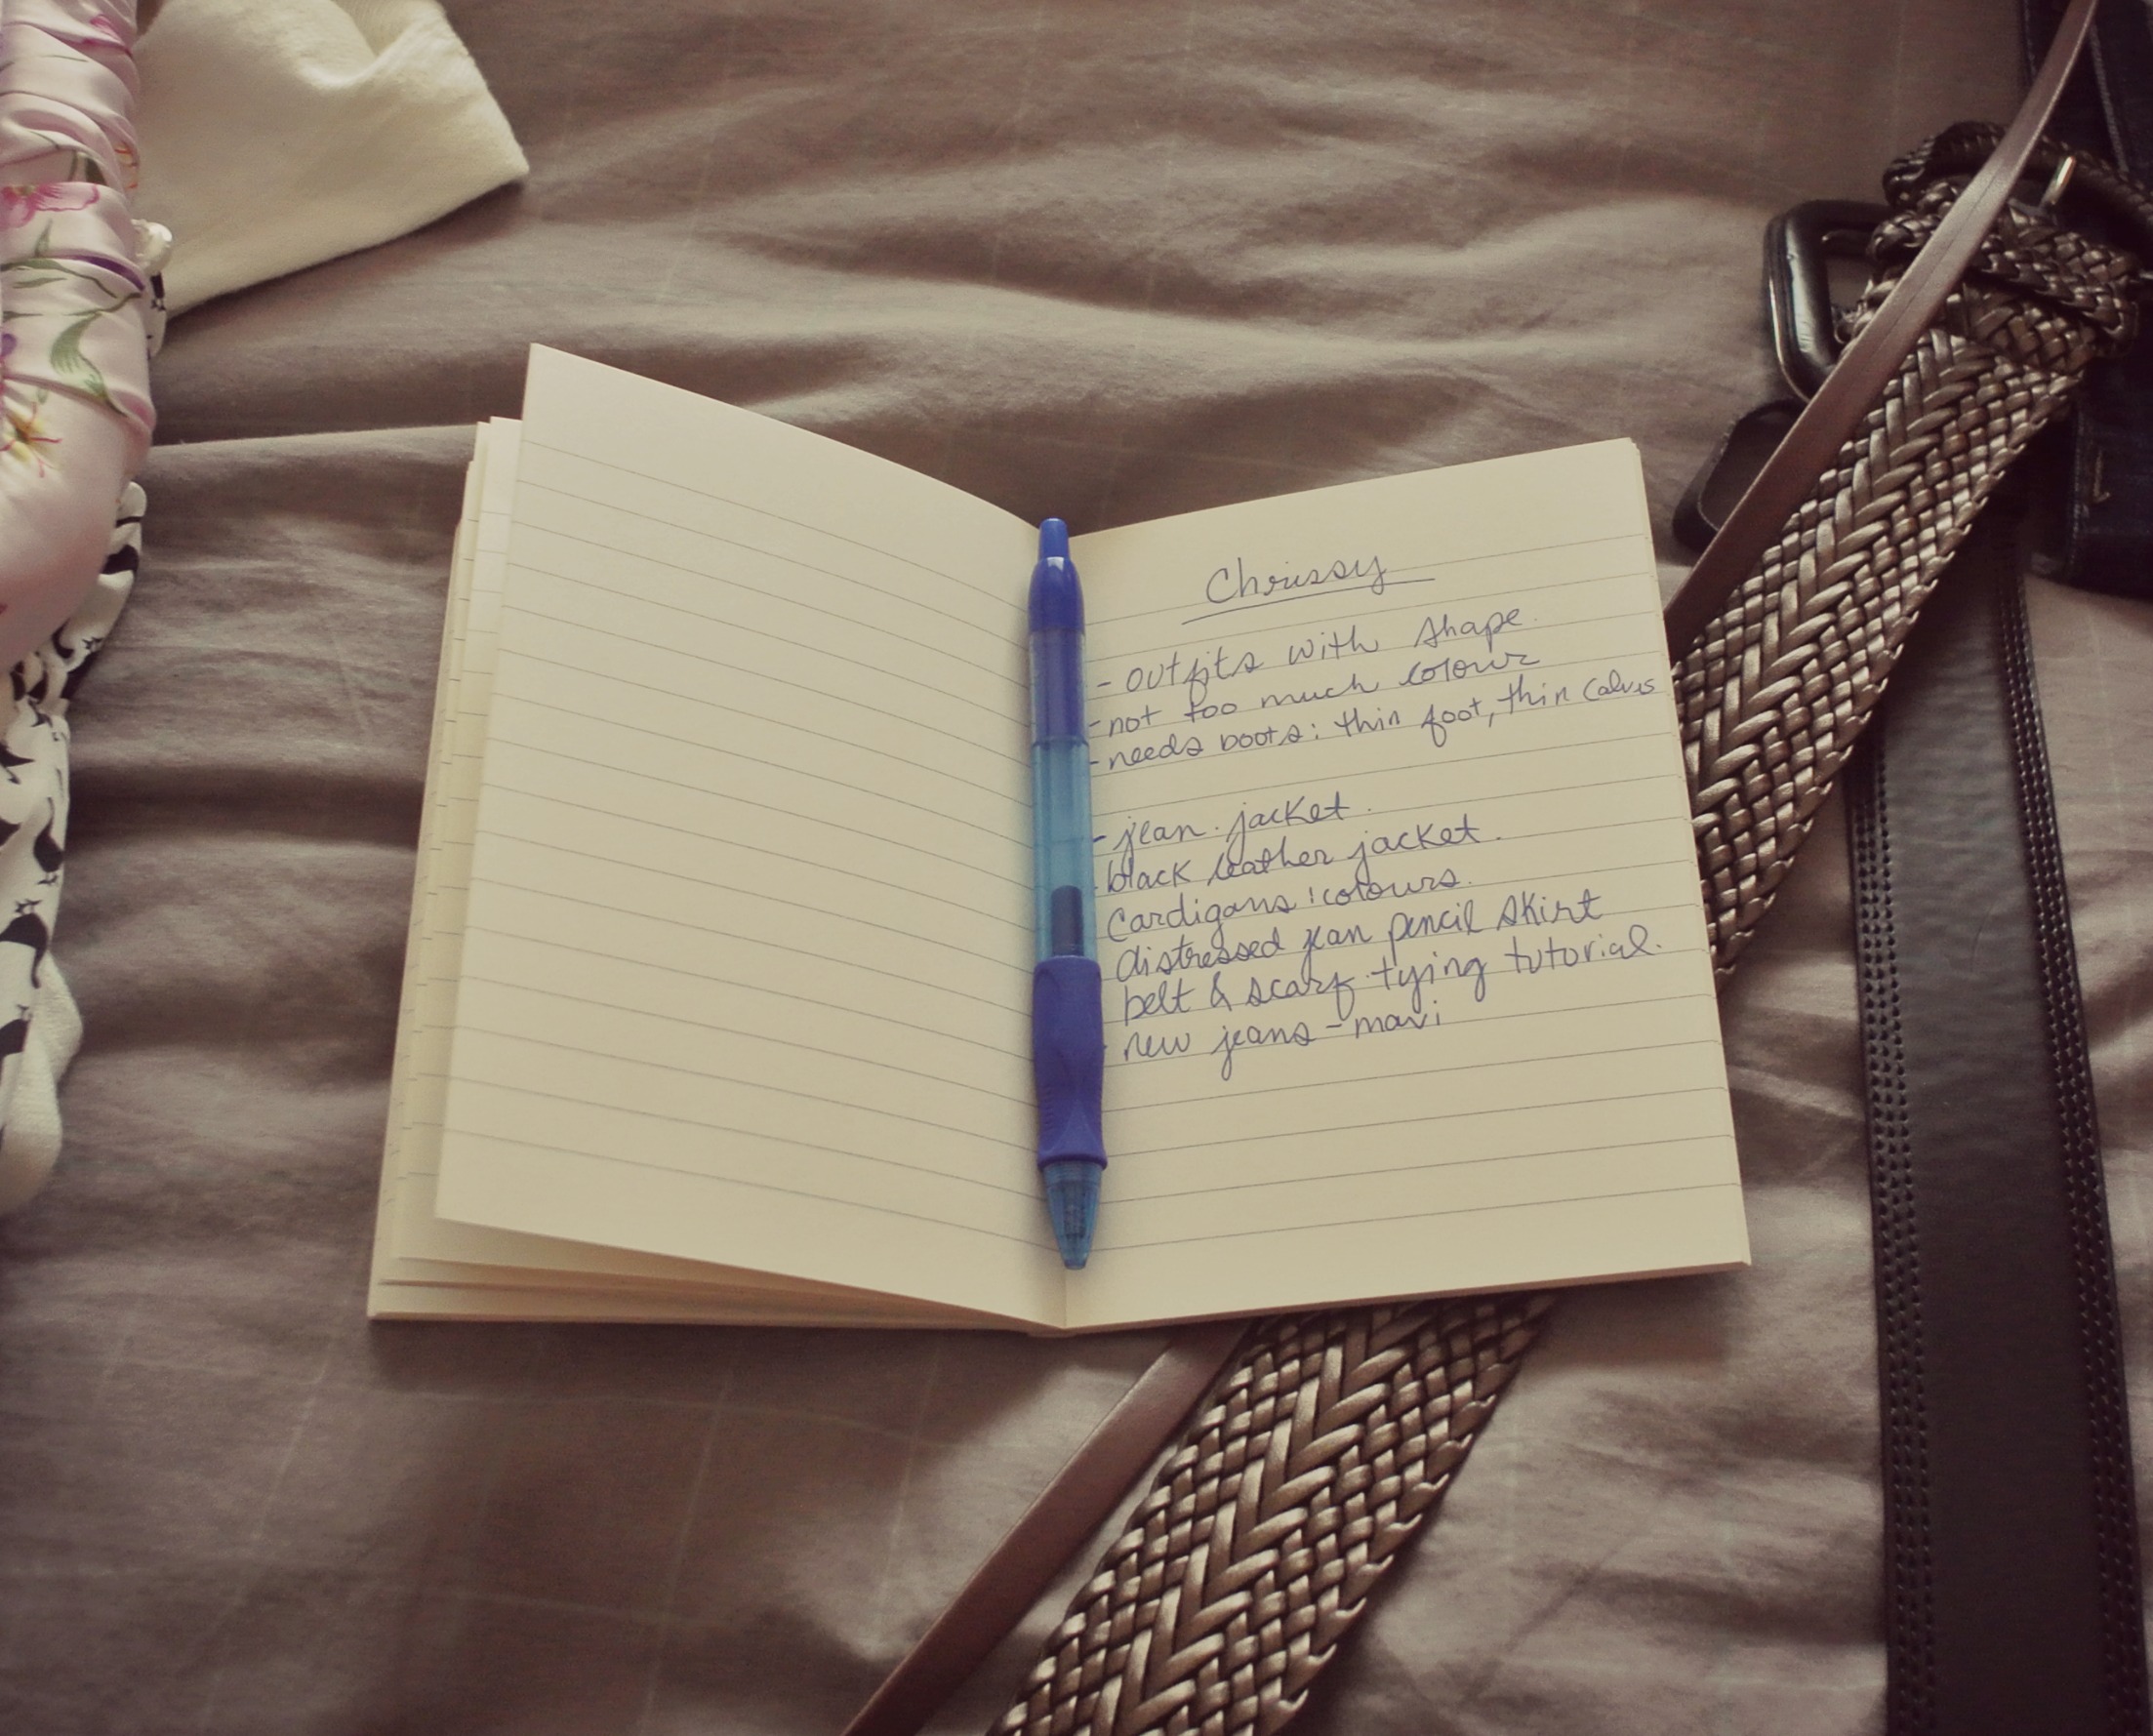 Chrissy
- outfits with shape.
- not too much colour
- needs boots: thin foot, thin calves
- jean jacket.
- black leather jacket.
cardigans: colours.
distressed jean pencil skirt
belt & scarf tying tutorial.
new jeans - mavi